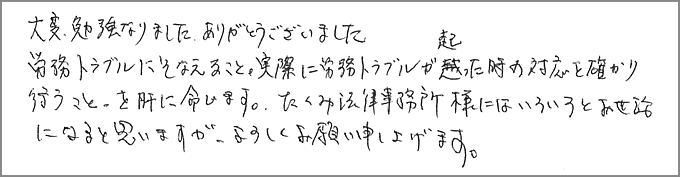 大変、勉強なりました。ありがとうございました
起
労務トラブルにそなえること。実際に労務トラブルが越った時の対応を確かり
行うこと。を肝に命じます。たくみ法律事務所様にはいろいろとお世話
になると思いますが、よろしくお願い申し上げます。